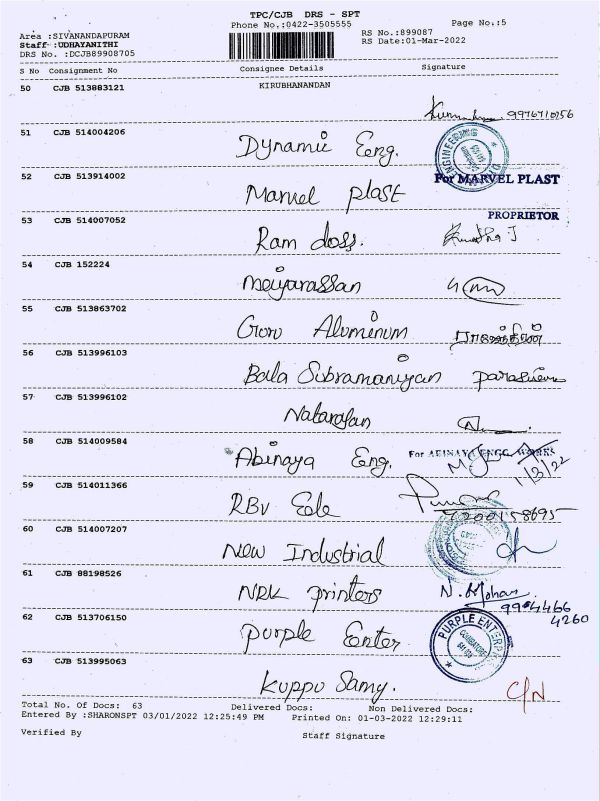 TPC/CJB DRS - SPT
Phone No.:0422-3505555 Page No.:5
Area :SIVANANDAPURAM RS No.:899087
Staff :UDHAYANITHI RS Date:01-Mar-2022
DRS No. :DCJB89908705
S No Consignment No Consignee Details Signature
50 CJB 513883121 KIRUBHANANDAN
9976710156
51 CJB 514004206
Dynamic Eeng.
ENGINEERING
52 CJB 513914002 For MARVEL PLAST
Marvel plast
53 CJB 514007052 PROPRIETOR
Ram doss.
54 CJB 152224
Meiyarassan
55 CJB 513863702
Guru Aluminum
56 CJB 513996103
Bala Subramaniyan
57 CJB 513996102
Natarajan
58 CJB 514009584 For ABINAYA ENGG. WORKS
Abinaya Eng. 1/3/22
59 CJB 514011366
RBV Ede
60 CJB 514007207
New Industrial
61 CJB 88198526
NRK printers N. Mohan
4260
62 CJB 513706150 PURPLE ENTERP
purple Enter
63 CJB 513995063
Kuppu Samy. C/N
Total No. Of Docs: 63 Delivered Docs: Non Delivered Docs:
Entered By :SHARONSPT 03/01/2022 12:25:49 PM Printed On: 01-03-2022 12:29:11
Verified By Staff Signature